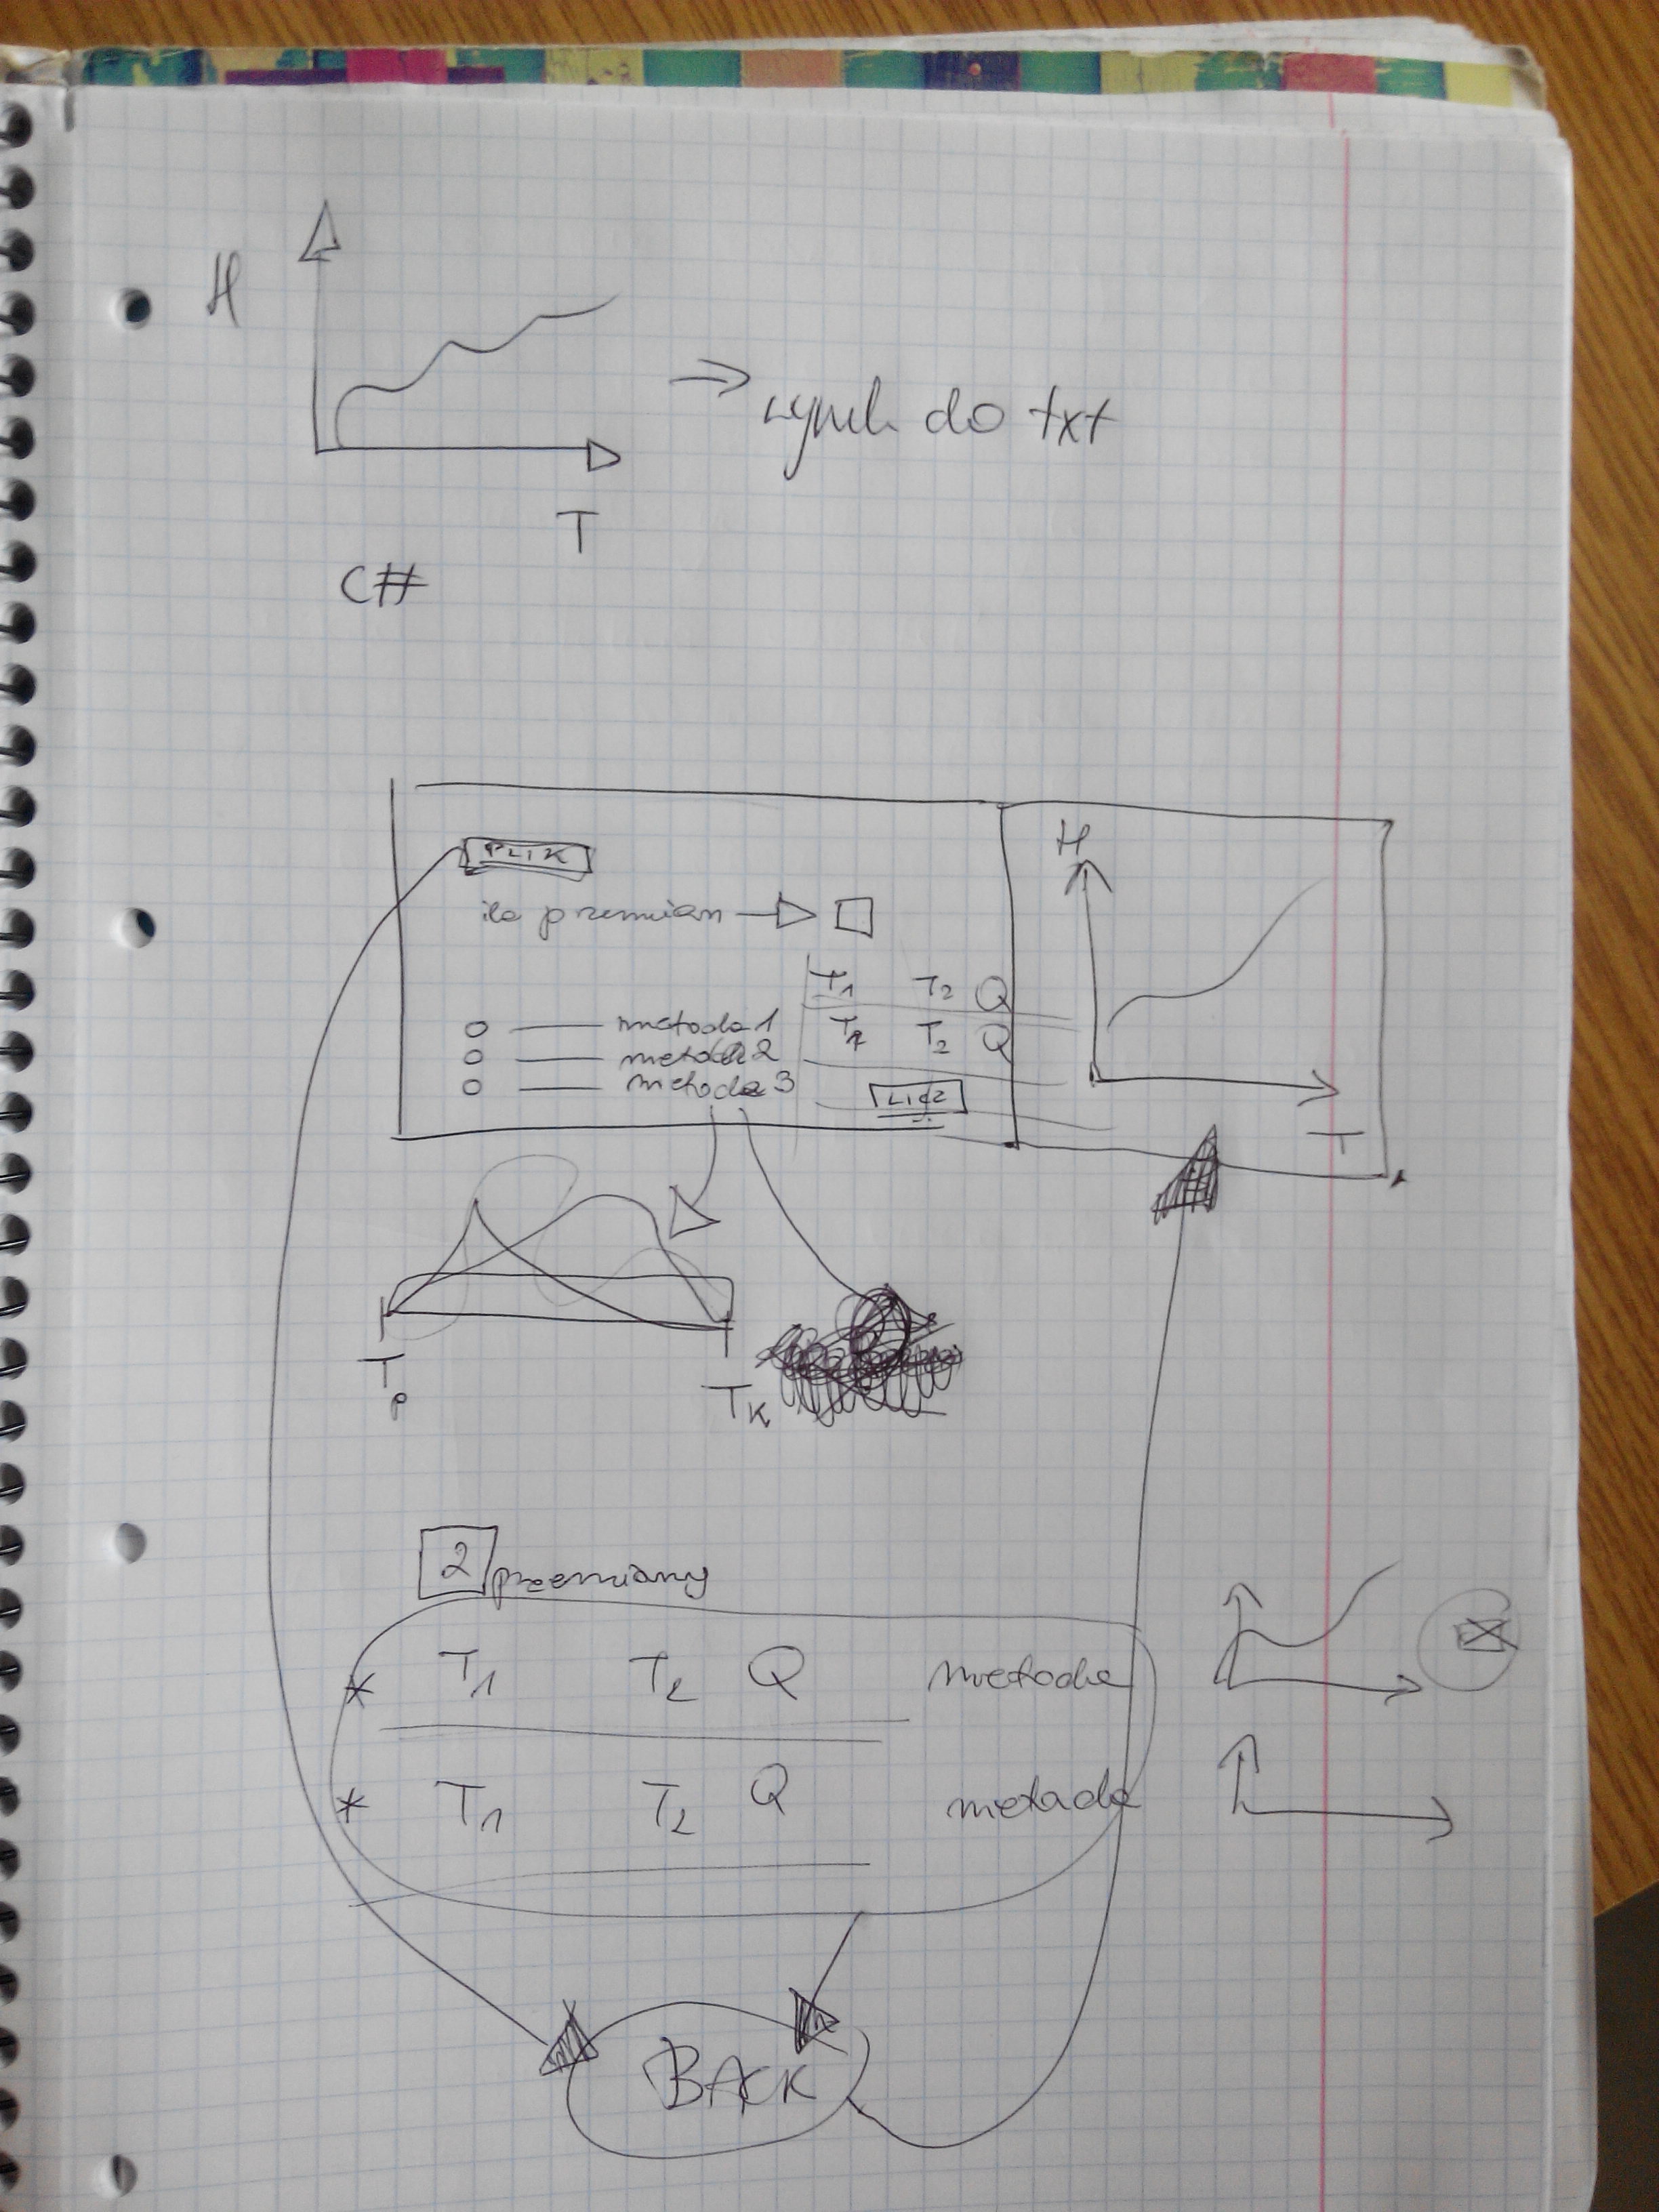 H
wynik do txt
T
C#
PLIK
H
ile przemian
T1 T2 Q
metoda 1
T1 T2 Q
metoda 2
metoda 3
LICZ
T
Tp
TK
2 przemiany
* T1 T2 Q metoda
* T1 T2 Q metoda
BACK